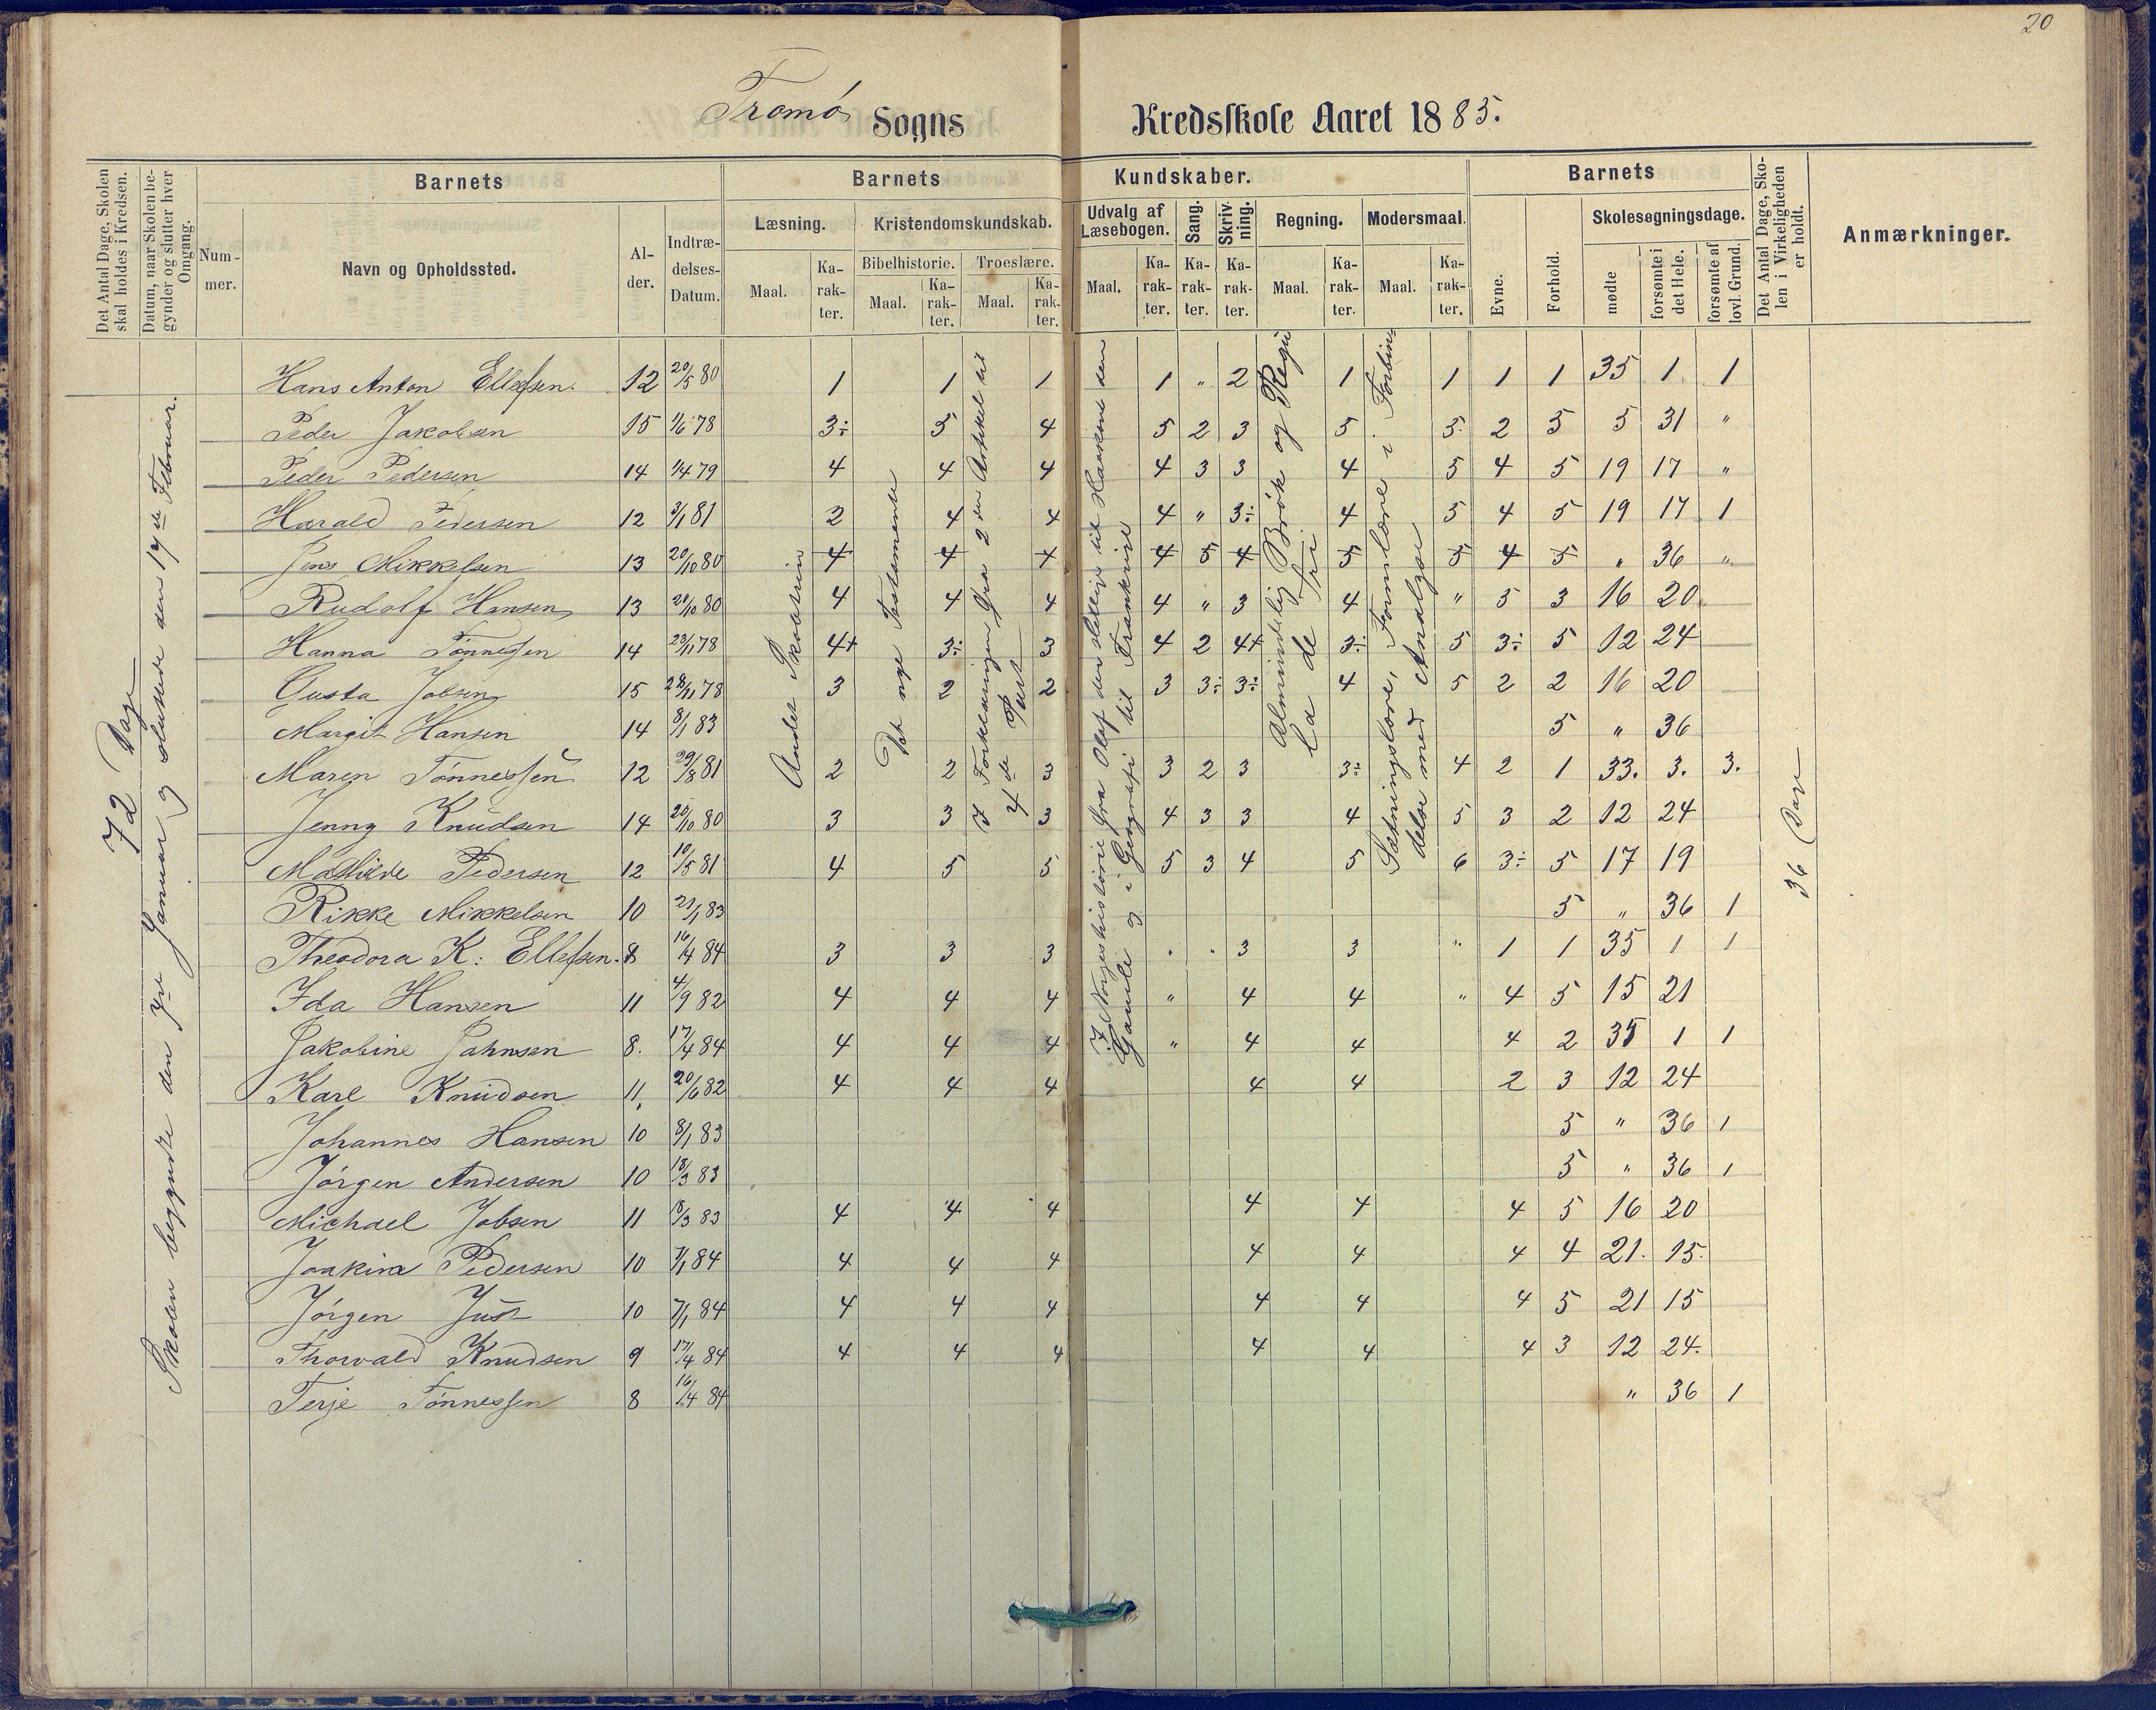 20
Tromø Sogns Kredsskole Aaret 1885.
Det Antal Dage, Skolen skal holdes i Kredsen.
Datum, naar Skolen begynder og slutter hver Omgang.
Nummer.
Barnets
Navn og Opholdssted.
Alder.
Indtrædelses-Datum.
Barnets Kundskaber.
Læsning.
Maal.
Karakter.
Kristendomskundskab.
Bibelhistorie.
Maal.
Karakter.
Troeslære.
Maal.
Karakter.
Udvalg af Læsebogen.
Maal.
Karakter.
Sang.
Karakter.
Skrivning.
Karakter.
Regning.
Maal.
Karakter.
Modersmaal.
Maal.
Karakter.
Barnets
Evne.
Forhold.
Skolesøgningsdage.
mødte
forsømte i det Hele.
forsømte af lovl. Grund.
Det Antal Dage, Skolen i Virkeligheden er holdt.
Anmærkninger.
72 Dage
Skolen begyndte den 7de Januar og sluttede den 17de Februar.
Andet Skoletrin
Det nye Testamente
I Forklaringen fra 2den Artikel til 4de Part
I Norgeshistorie fra Olaf den hellige til Haakon den Gamle og i Geografi til Frankrige
Almindelig Brøk og Regula de tri
Sætningslære, Formlære i Forbindelse med Analyse
36 Dage
Hans Anton Ellefsen. 12 20/5 80 1 1 1 1 " 2 1 1 1 1 35 1 1
Peder Jakobsen 15 1/6 78 3÷ 5 4 5 2 3 5 5. 2 5 5 31 "
Peder Pedersen 14 1/4 79 4 4 4 4 3 3 4 5 4 5 19 17 "
Harald Pedersen 12 3/1 81 2 4 4 4 " 3÷ 4 5 4 5 19 17 1
Jens Mikkelsen 13 20/10 80 4 4 4 4 5 4 5 5 4 5 " 36 "
Rudolf Hansen 13 20/10 80 4 4 4 4 " 3 4 " 5 3 16 20
Hanna Tønnesen 14 23/11 78 4+ 3÷ 3 4 2 4+ 3÷ 5 3÷ 5 12 24
Gusta Jobsen 15 28/11 78 3 2 2 3 3÷ 3÷ 4 5 2 2 16 20
Margit Hansen 14 8/1 83 5 " 36
Maren Tønnessen 12 29/8 81 2 2 3 3 2 3 3÷ 4 2 1 33. 3. 3.
Jenny Knudsen 14 20/10 80 3 3 3 4 3 3 4 5 3 2 12 24
Mathilde Pedersen 12 10/5 81 4 5 5 5 3 4 5 6 3÷ 5 17 19
Rikke Mikkelsen 10 21/1 83 5 " 36 1
Theodora K: Ellefsen. 8 16/4 84 3 3 3 " " 3 3 " 1 1 35 1 1
Ida Hansen 11 4/9 82 4 4 4 " 4 4 " 4 5 15 21
Jakobine Jahnsen 8. 17/4 84 4 4 4 " 4 4 4 2 35 1 1
Karl Knudsen 11, 20/6 82 4 4 4 4 4 2 3 12 24
Johannes Hansen 10 8/1 83 5 " 36 1
Jørgen Andersen 10 13/3 83 5 " 36 1
Michael Jobsen 11 13/3 83 4 4 4 4 4 4 5 16 20
Joakim Pedersen 10 7/1 84 4 4 4 4 4 4 4 21. 15.
Jørgen Just 10 7/1 84 4 4 4 4 4 4 5 21 15
Thorvald Knudsen 9 17/4 84 4 4 4 4 4 4 3 12 24.
Terje Tønnessen 8 16/4 84 " 36 1